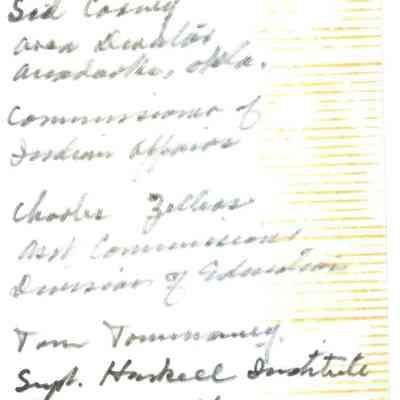 Sid Carney
Area Director
Anadarko, Okla.
Commissioner of
Indian Affairs
Charles Zellers
Asst Commissioner
Division of Education
Tom Tommaney
Supt. Haskell Institute